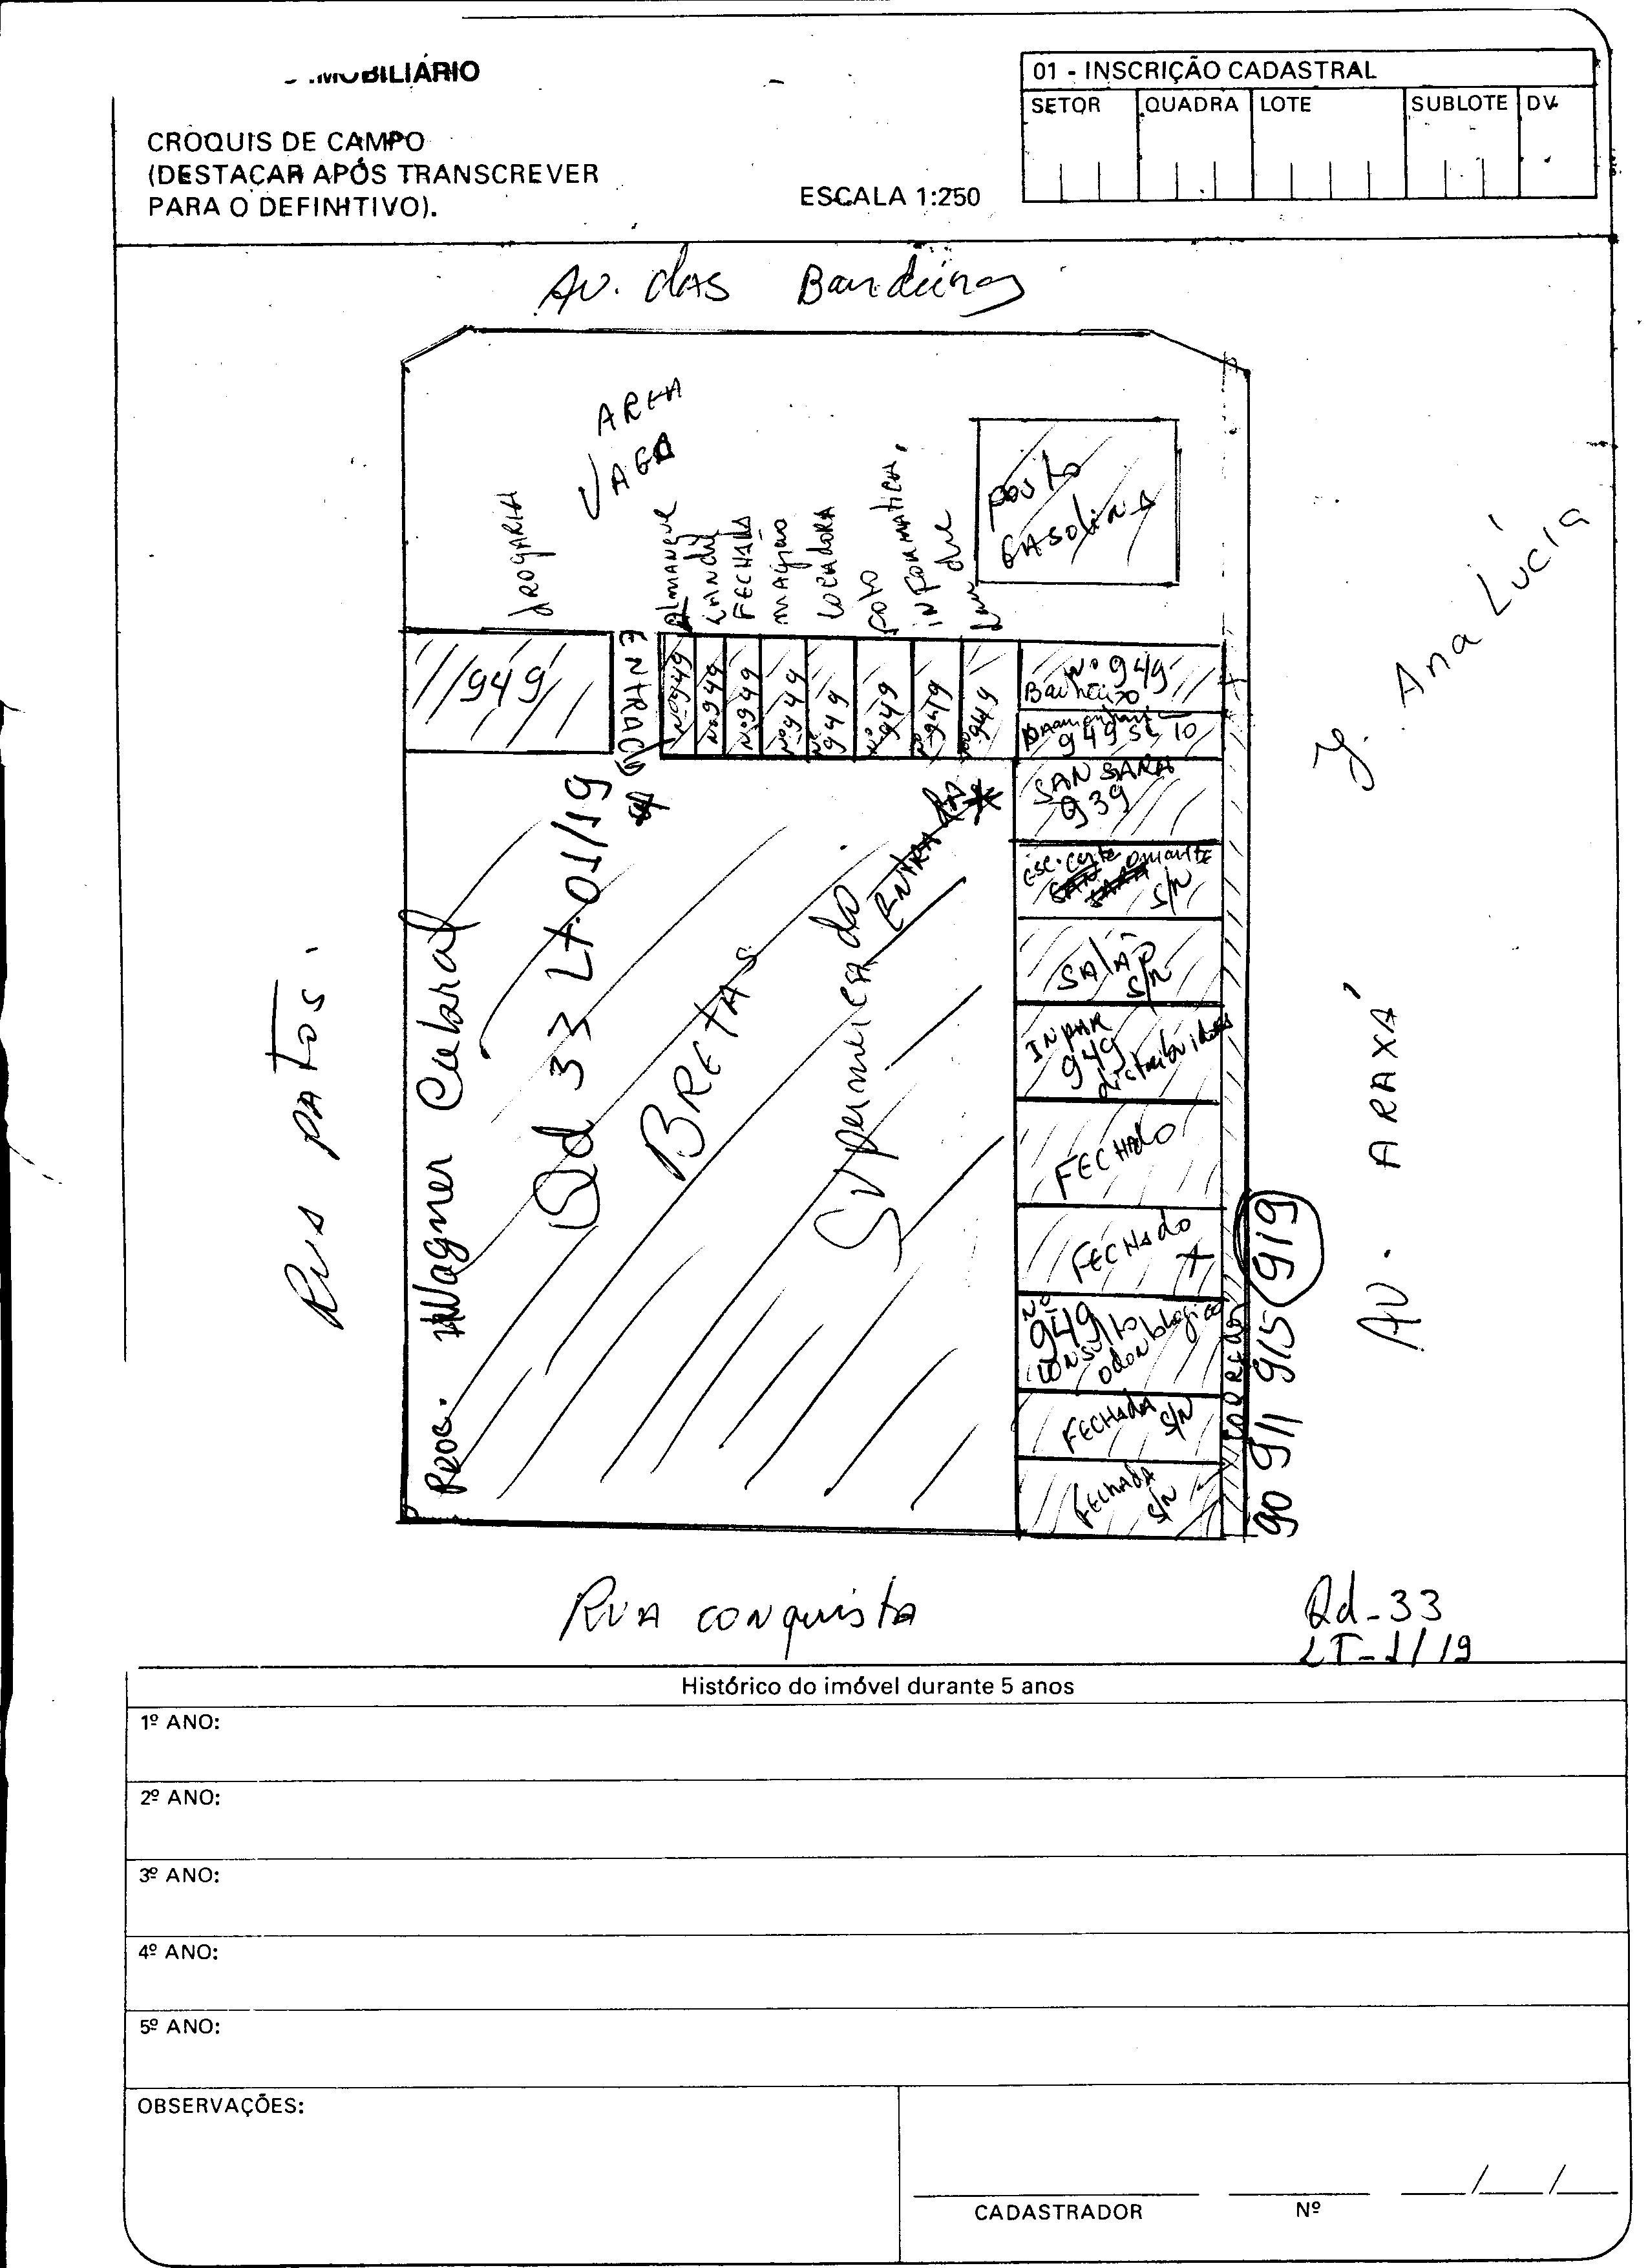 IMOBILIÁRIO
01 - INSCRIÇÃO CADASTRAL
SETOR QUADRA LOTE SUBLOTE DV
CROQUIS DE CAMPO
(DESTACAR APÓS TRANSCREVER
PARA O DEFINITIVO).
ESCALA 1:250
Av. das Bandeiras
AREA
VAGA
posto
GASOLINA
J. Ana Lúcia
dROGARIA
ALMANQUE
FECHADA
LOCADORA
foto
INFORMATICA
949
ENTRADA
Nº 949
Nº 949
Nº 949
Nº 949
Nº 949
Nº 949
Nº 949
Nº 949
Nº 949
949 SL 10
SANSARA
939
S/N
SALÃO
S/N
INPAR
949
distribuidora
FECHAdo
FECHAdo
Nº
949
CONSULTO
odontologico
FECHAdA S/N
FECHAdA
S/N
CORREDOR
90 911 915 919
ENTRADA
Supermercado
BRETAS
Qd 33 Lt. 01/19
PROP. Wagner Cabral
RUA PATOS.
AV. ARAXÁ
RUA CONQUISTA
Qd-33
LT-1/19
Histórico do imóvel durante 5 anos
1º ANO:
2º ANO:
3º ANO:
4º ANO:
5º ANO:
OBSERVAÇÕES:
CADASTRADOR Nº